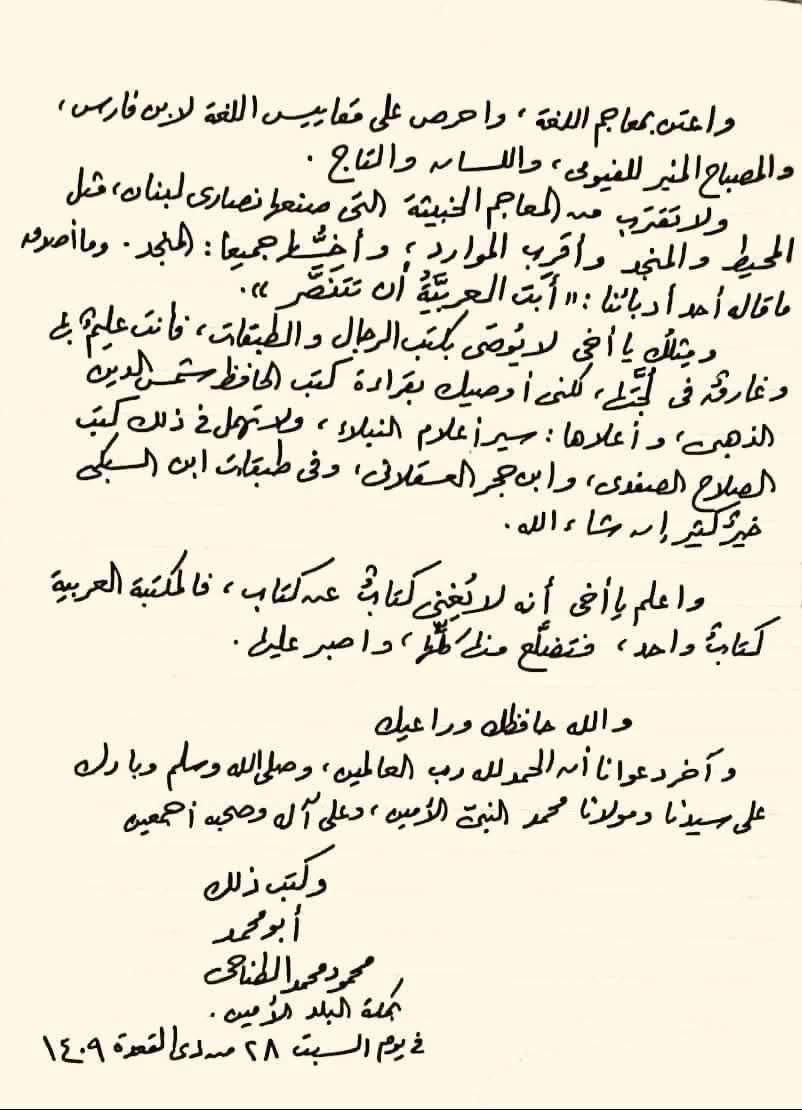 واعتن بمعاجم اللغة ، واحرص على مقاييس اللغة لابن فارس ،
والمصباح المنير للفيومى ، واللسان والتاج .
ولا تقترب من المعاجم الخبيثة التى صنعها نصارى لبنان ، مثل
المحيط والمنجد وأقرب الموارد ، وأخسُّها جميعا : المنجد . وما أصدق
ما قاله أحد أدبائنا : « أَبَت العربيَّةُ أن تَتَنَصَّر » .
ومثلك يا أخى لا يُوصَى بكتب الرجال والطبقات ، فأنت عليمٌ بها
وغارقٌ فى لُجَّتها ، لكنى أوصيك بقراءة كتب الحافظ شمس الدين
الذهبى ، وأعلاها : سير أعلام النبلاء ، ولا تهمل فى ذلك كتب
الصلاح الصفدى ، وابن حجر العسقلانى ، وفى طبقات ابن السبكى
خيرٌ كثير إن شاء الله .
واعلم يا أخى أنه لا يُغنِى كتابٌ عن كتاب ، فالمكتبة العربية
كتابٌ واحد ، فتضلَّع منها كلِّها ، واصبر عليها .
والله حافظك وراعيك
وآخر دعوانا أن الحمد لله رب العالمين ، وصلى الله وسلم وبارك
على سيدنا ومولانا محمد النبىّ الأمين ، وعلى آله وصحبه أجمعين
وكتب ذلك
أبو محمد
محمود محمد الطناحى
بمكة البلد الأمين .
فى يوم السبت ٢٨ من ذى القعدة ١٤٠٩